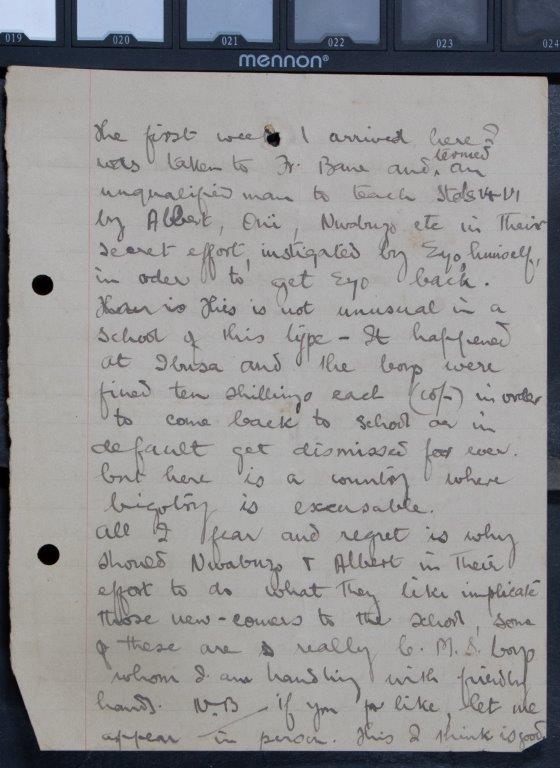 019 020 021 022 023 024
mennon®
The first week I arrived here I
was taken to Fr. Bane and, termed an
unqualified man to teach Stds V & VI
by Albert, Oni, Nwabuzo etc in their
secret effort, instigated by Eyo, himself,
in oder to get Eyo back.
This is not unusual in a
school of this type - It happened
at Ibusa and the boys were
fined ten shillings each (10/-) in order
to come back to school or in
default get dismissed for ever.
but here is a country where
bigotry is excusable.
All I fear and regret is why
should Nwabuzo & Albert in their
effort to do what they like implicate
those new-comers to the school, some
of these are really C. M. S. boys
whom I am handling with friendly
hands. N.B - if you like, let me
appear in person. This I think is good